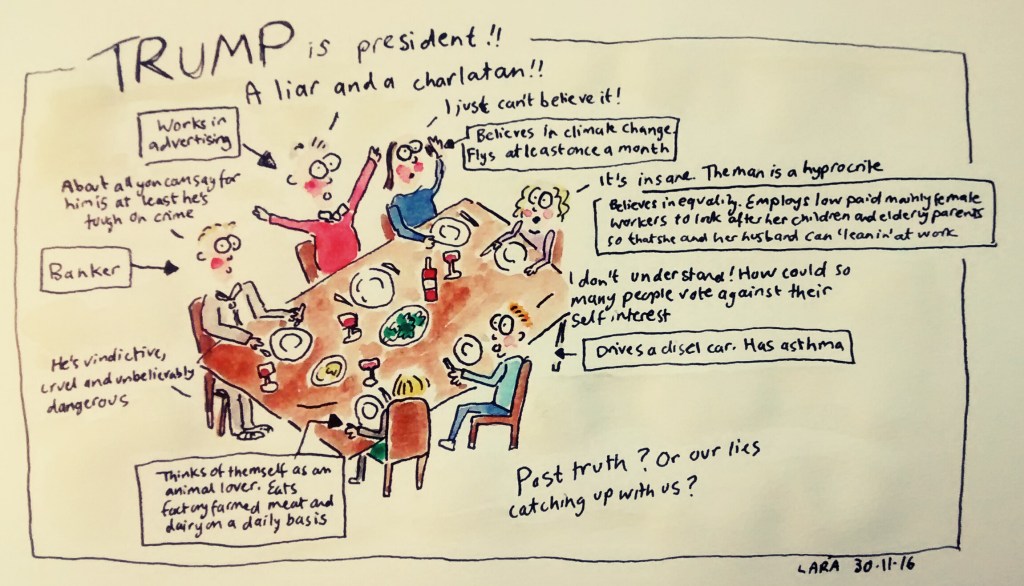 TRUMP is president!!
A liar and a charlatan!!
I just can't believe it!
Works in
advertising
Believes in climate change.
Flys at least once a month
About all you can say for
him is at least he's
tough on crime
Banker
It's insane. The man is a hyprocrite
Believes in equality. Employs low paid mainly female
workers to look after her children and elderly parents
so that she and her husband can 'lean in' at work
I don't understand! How could so
many people vote against their
self interest
Drives a disel car. Has asthma
He's vindictive,
cruel and unbelievably
dangerous
Thinks of themself as an
animal lover. Eats
factory farmed meat and
dairy on a daily basis
Post truth? Or our lies
catching up with us?
LARA 30·11·16